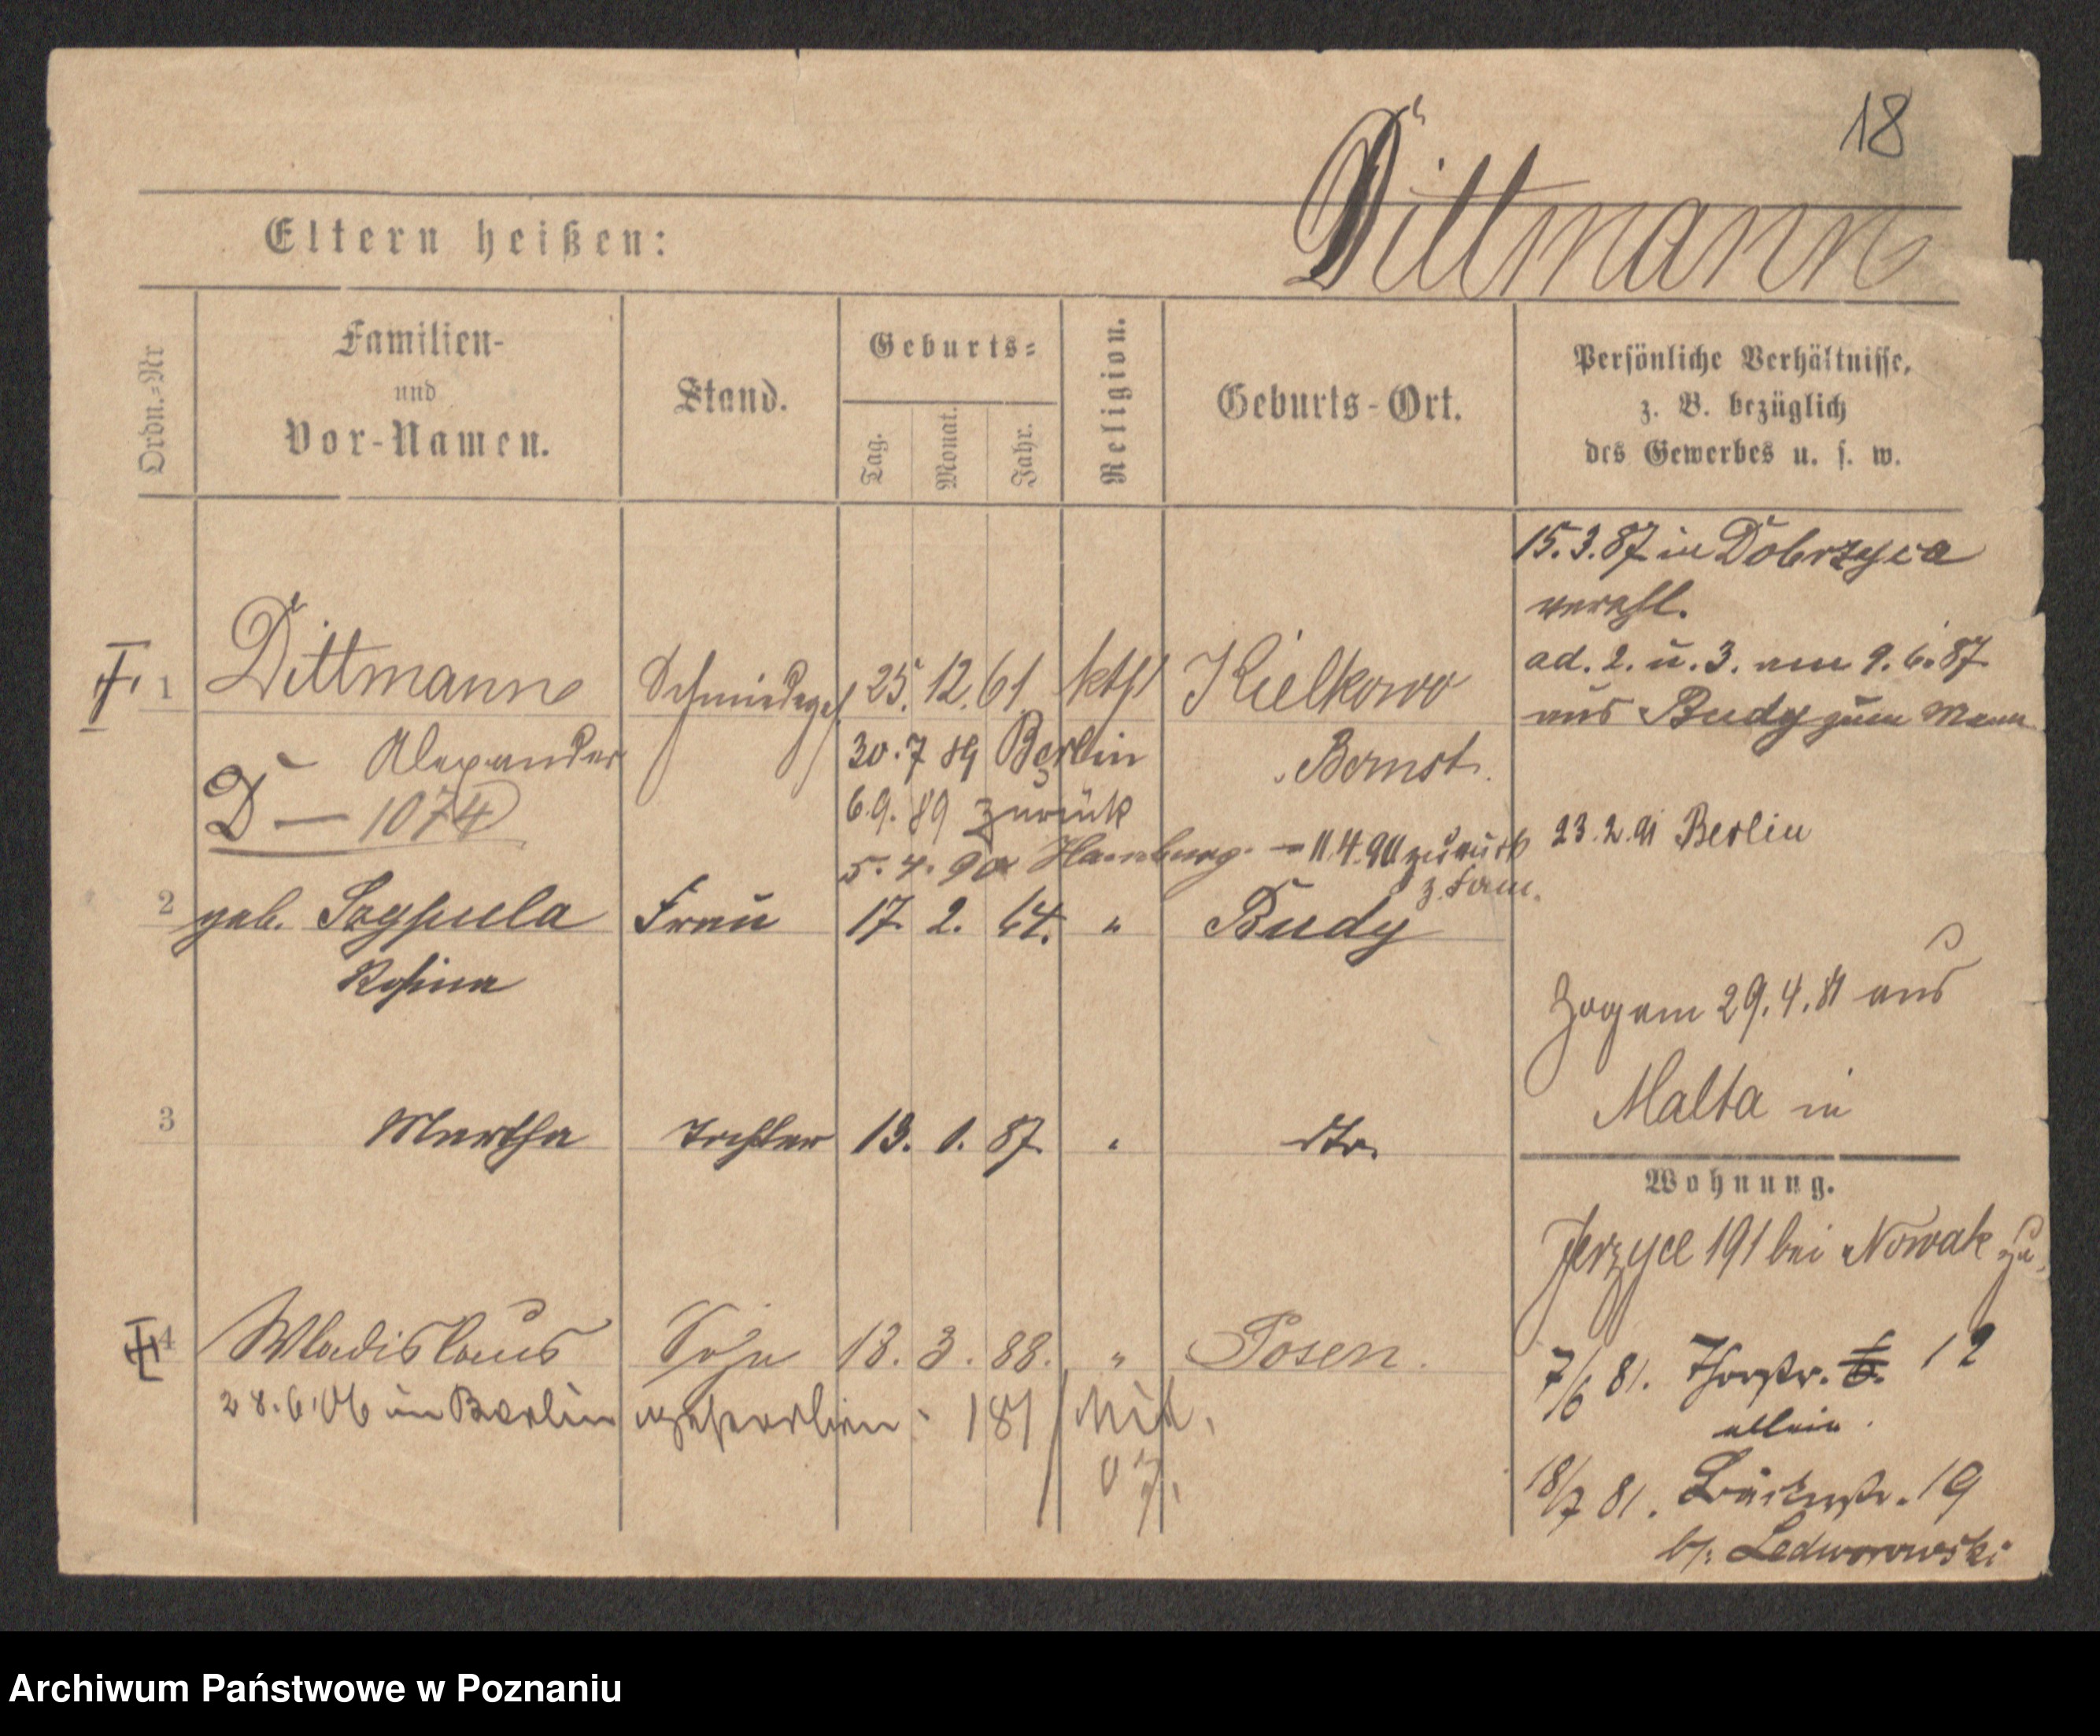 18
Dittmann
Eltern heißen:
Ordn.-Nr
Familien-
und
Vor-Namen.
Stand.
Geburts-
Tag.
Monat.
Jahr.
Religion.
Geburts-Ort.
Persönliche Verhältnisse,
z. B. bezüglich
des Gewerbes u. s. w.
15.3.87 in Dobrzyca
verehl.
ad. 2. u. 3. am 9.6.87
aus Budy zum Mann
1 Dittmann Schmiedeges 25. 12. 61 kthl Kielkowo
Alexander 30.7 89 Berlin Bomst.
D — 1074 6.9.89 zurück
5.4.90 Hamburg. — 11.4.90 zurück
z. Fam.
23.2.91 Berlin
2 geb. Frau 17. 2. 64. " Budy
Rosina
Zog am 29.4.81 aus
Malta in
3 Martha Tochter 13. 1. 87. " dto.
Wohnung.
Jerzyce 191 bei Nowak zu.
4 Wladislaus Sohn 13. 3. 88. " Posen.
28.6.06 in Berlin 181 Mil.
07.
7/6 81. Thorstr. 6. 12
allein.
18/7 81. 19
b/. Ledworowski
Archiwum Państwowe w Poznaniu